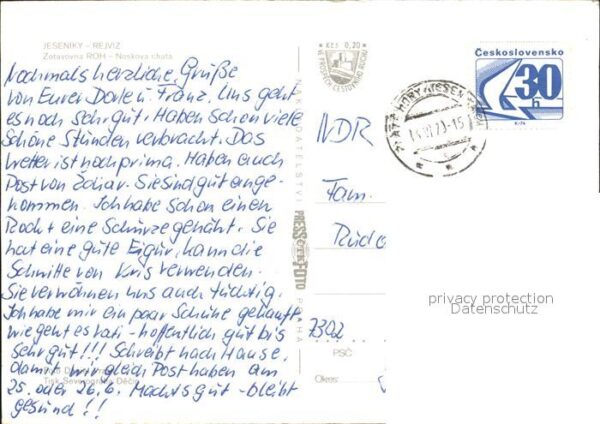 JESENÍKY - REJVÍZ
Zotavovna ROH - Noskova chata
Nochmals herzliche Grüße
von Eurer Dorle u. Franz. Uns geht
es noch sehr gut. Haben schon viele
schöne Stunden verbracht. Das
Wetter ist noch prima. Haben auch
Post von erhalten. Sie sind gut ange-
kommen. Ich habe schon einen
Rock + eine Schürze genäht. Sie
hat eine gute Figur, kann die
Schnitte von Kris verwenden.
Sie verwöhnen uns auch tüchtig.
Ich habe mir ein paar Schuhe gekauft.
Wie geht es Vati - hoffentlich gut bis
sehr gut!!! Schreibt nach Hause,
damit wir gleich Post haben am
25. oder 26.6. Machts gut - bleibt
gesund!!
Tisk Severografia Děčín
NAKLADATELSTVÍ
PRESSFOTO
PRAHA
Kčs 0,20
Československo
30
h
ZLATÉ HORY
-15
NDR
Fam.
7302
PSČ
Okres
privacy protection
Datenschutz